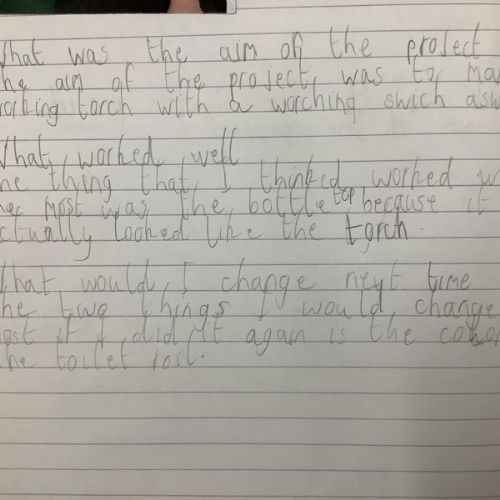 What was the aim of the project
the aim of the project, was to, ma
orching torch with a worching swich asw
What, worhed, well
the thing that, I thinked worhed w
the most was the, bottle top because it
ctually looked like the torch.
What, would, I change next time
the two things I would, change
ost if I did it again is the
the toilet roll.